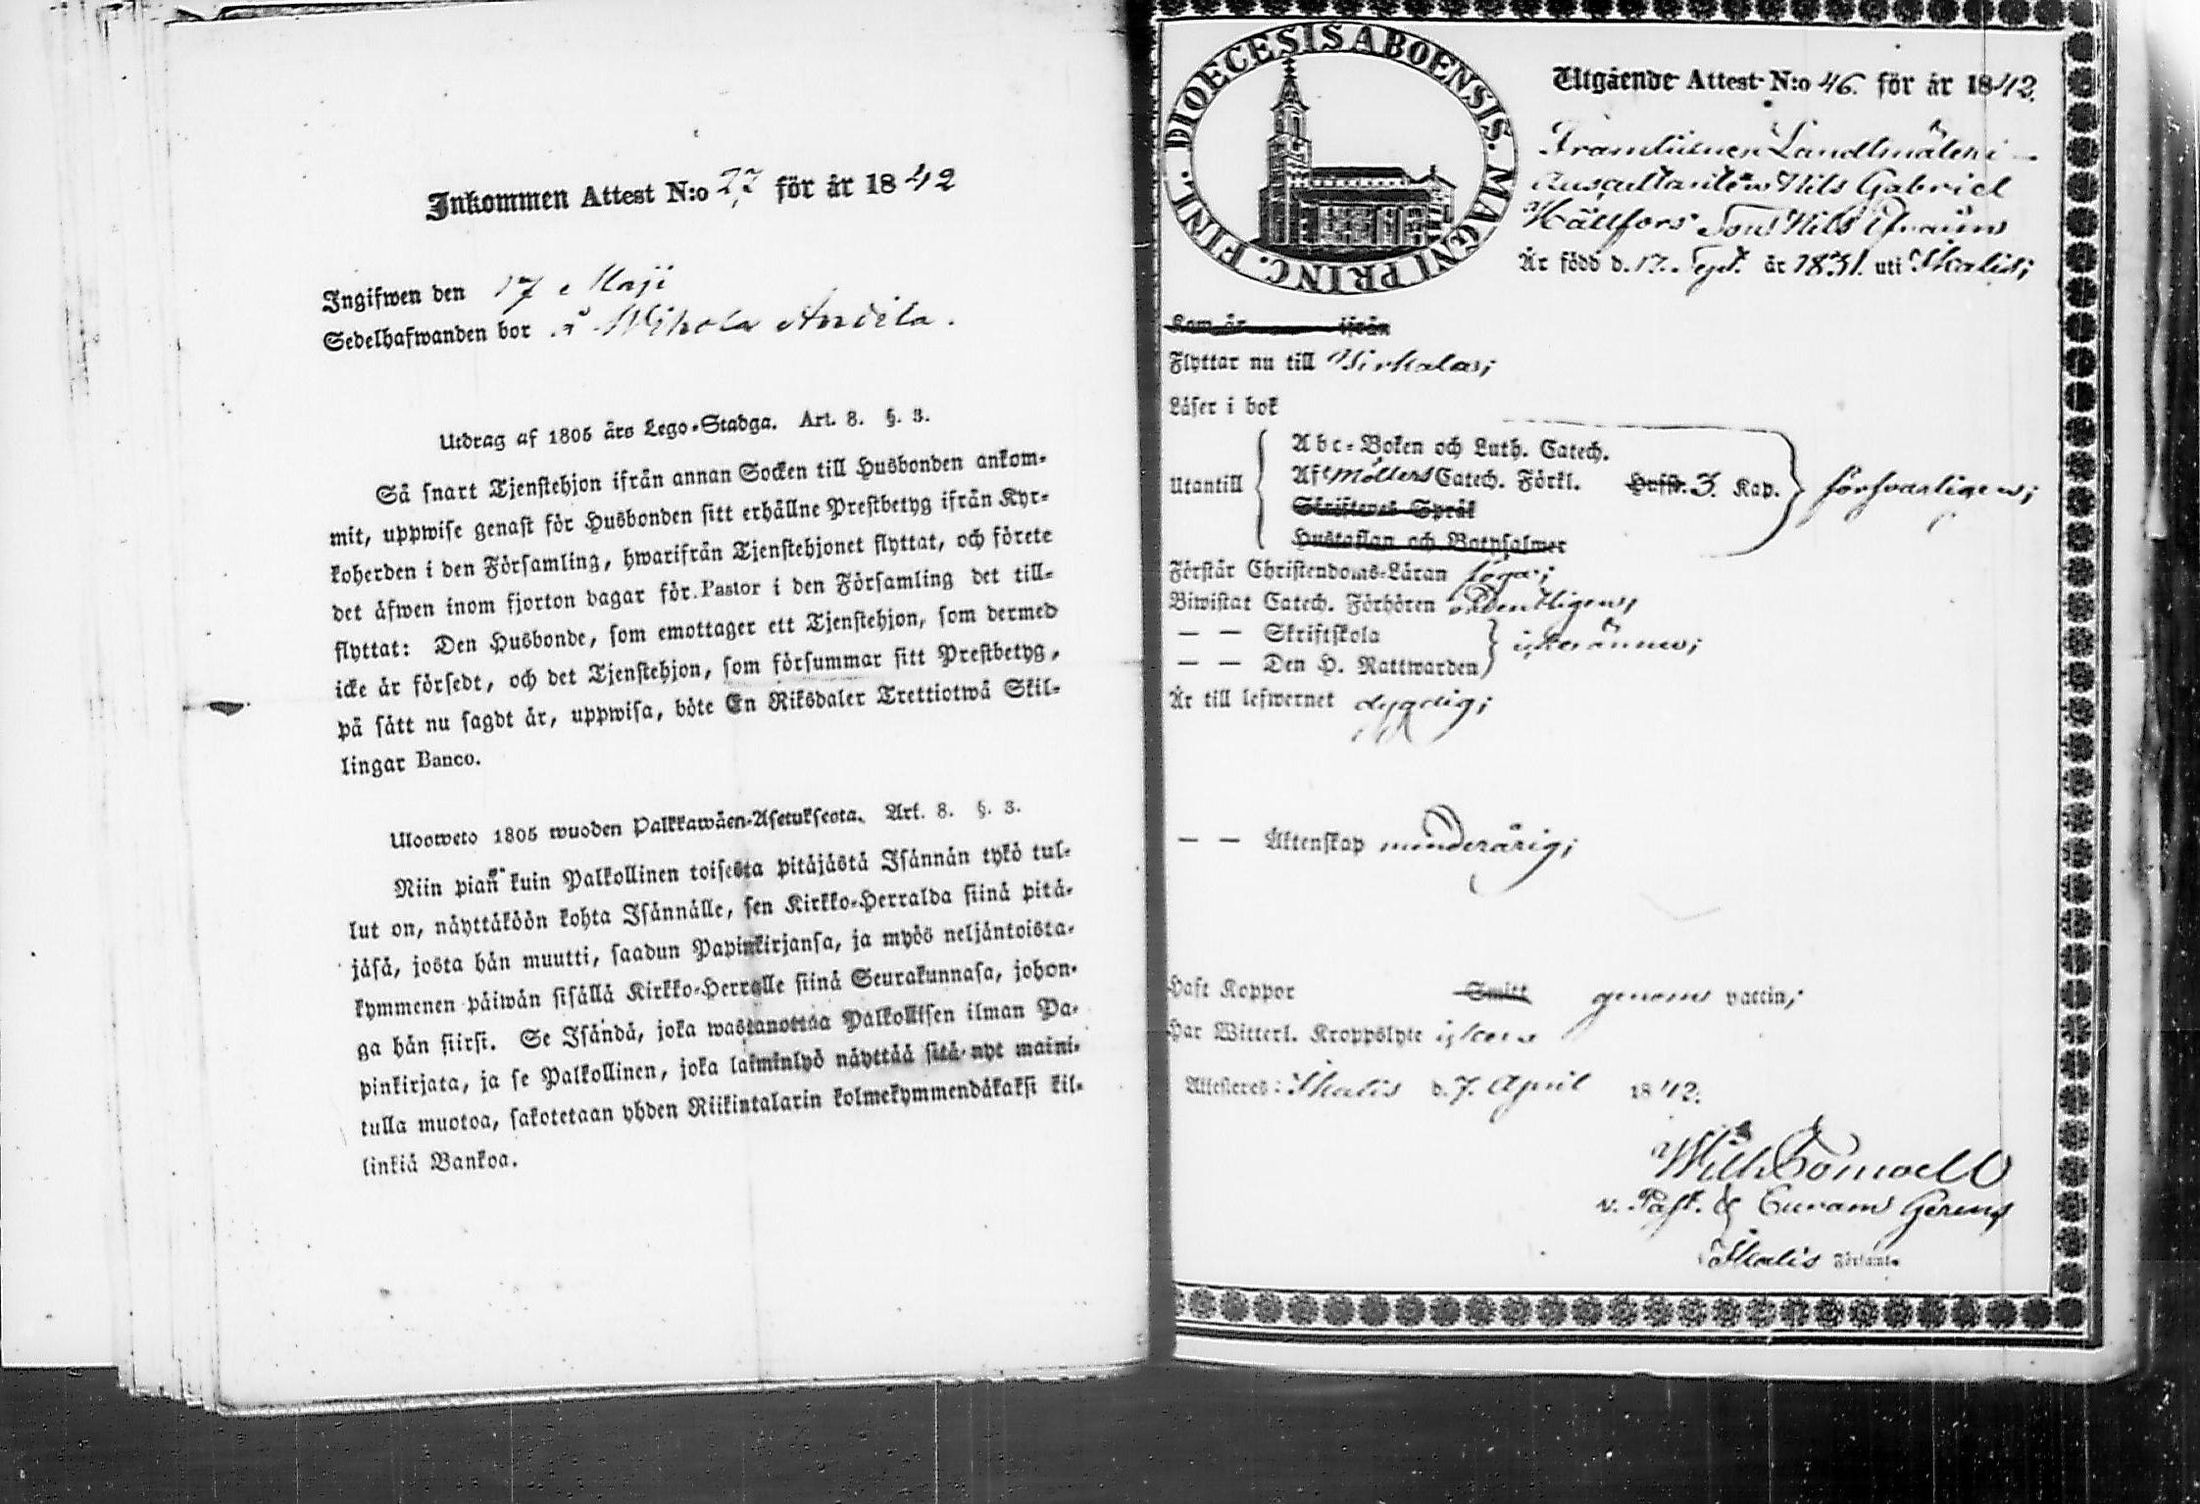 Inkommen Attest N:o 27 för år 1842
Ingifwen den 17 Maji
Sedelhafwanden bor å Anöila.
Utdrag af 1805 års Lego-Stadga. Art. 8. §. 3.
Så snart Tjenstehjon ifrån annan Socken till Husbonden ankom-
mit, uppwise genast för Husbonden sitt erhållne Prestbetyg ifrån Kyr-
koherden i den Församling, hwarifrån Tjenstehjonet flyttat, och förete
det åfwen inom fjorton dagar för Pastor i den Församling det till-
flyttat: Den Husbonde, som emottager ett Tjenstehjon, som dermed
icke är försedt, och det Tjenstehjon, som försummar sitt Prestbetyg,
på sått nu sagdt år, uppwisa, böte En Riksdaler Trettiotwå Skil-
lingar Banco.
Ulosweto 1805 wuoden Palkkawäen-Asetuksesta. Art. 8. §. 3.
Niin pian kuin Palkollinen toisesta pitäjästä Isännän tykö tul-
lut on, näyttäköön kohta Isännälle, sen Kirkko-Herralda siinä pitä-
jäsä, josta hän muutti, saadun Papinkirjansa, ja myös neljäntoista-
kymmenen päiwän sisällä Kirkko-Herralle siinä Seurakunnasa, johon-
ga hän siirsi. Se Isändä, joka wastanottaa Palkollisen ilman Pa-
pinkirjata, ja se Palkollinen, joka laiminlyö näyttää sitä nyt maini-
tulla muotoa, sakotetaan yhden Riikintalarin kolmekymmendäkaksi kil-
linkiä Bankoa.
DIOECESIS ABOENSIS. MAGNI PRINC. FINL.
Utgående Attest N:o 46. för år 1842.
Framlidne Landtmäteri-
Auscultanten Nils Gabriel
Hällfors Son Nils Efraim
Är född d. 17. Sept. år 1831. uti Ikalis;
Kom år ifrån
Flyttar nu till Birkala;
Läser i bok
Abc-Boken och Luth. Catech.
Utantill Af Möllers Catech. Förkl. Husst. 3. Kap. försvarligen;
Skriftenes Språk
Hustaflan och Botpsalmer
Förstår Christendoms-Läran
Biwistat Catech. Förhören ordentligen;
— — Skriftskola
— — Den H. Nattwarden icke ännu;
Är till lefwernet dygdig;
— — Äktenskap minderårig;
Haft Koppor Smitt genom vaccin;
Har Witterl. Kroppslyte icke
Attesteres: Ikalis d. 7. April 1842.
v. Past. & Curam Gerens
Ikalis Förlaml.